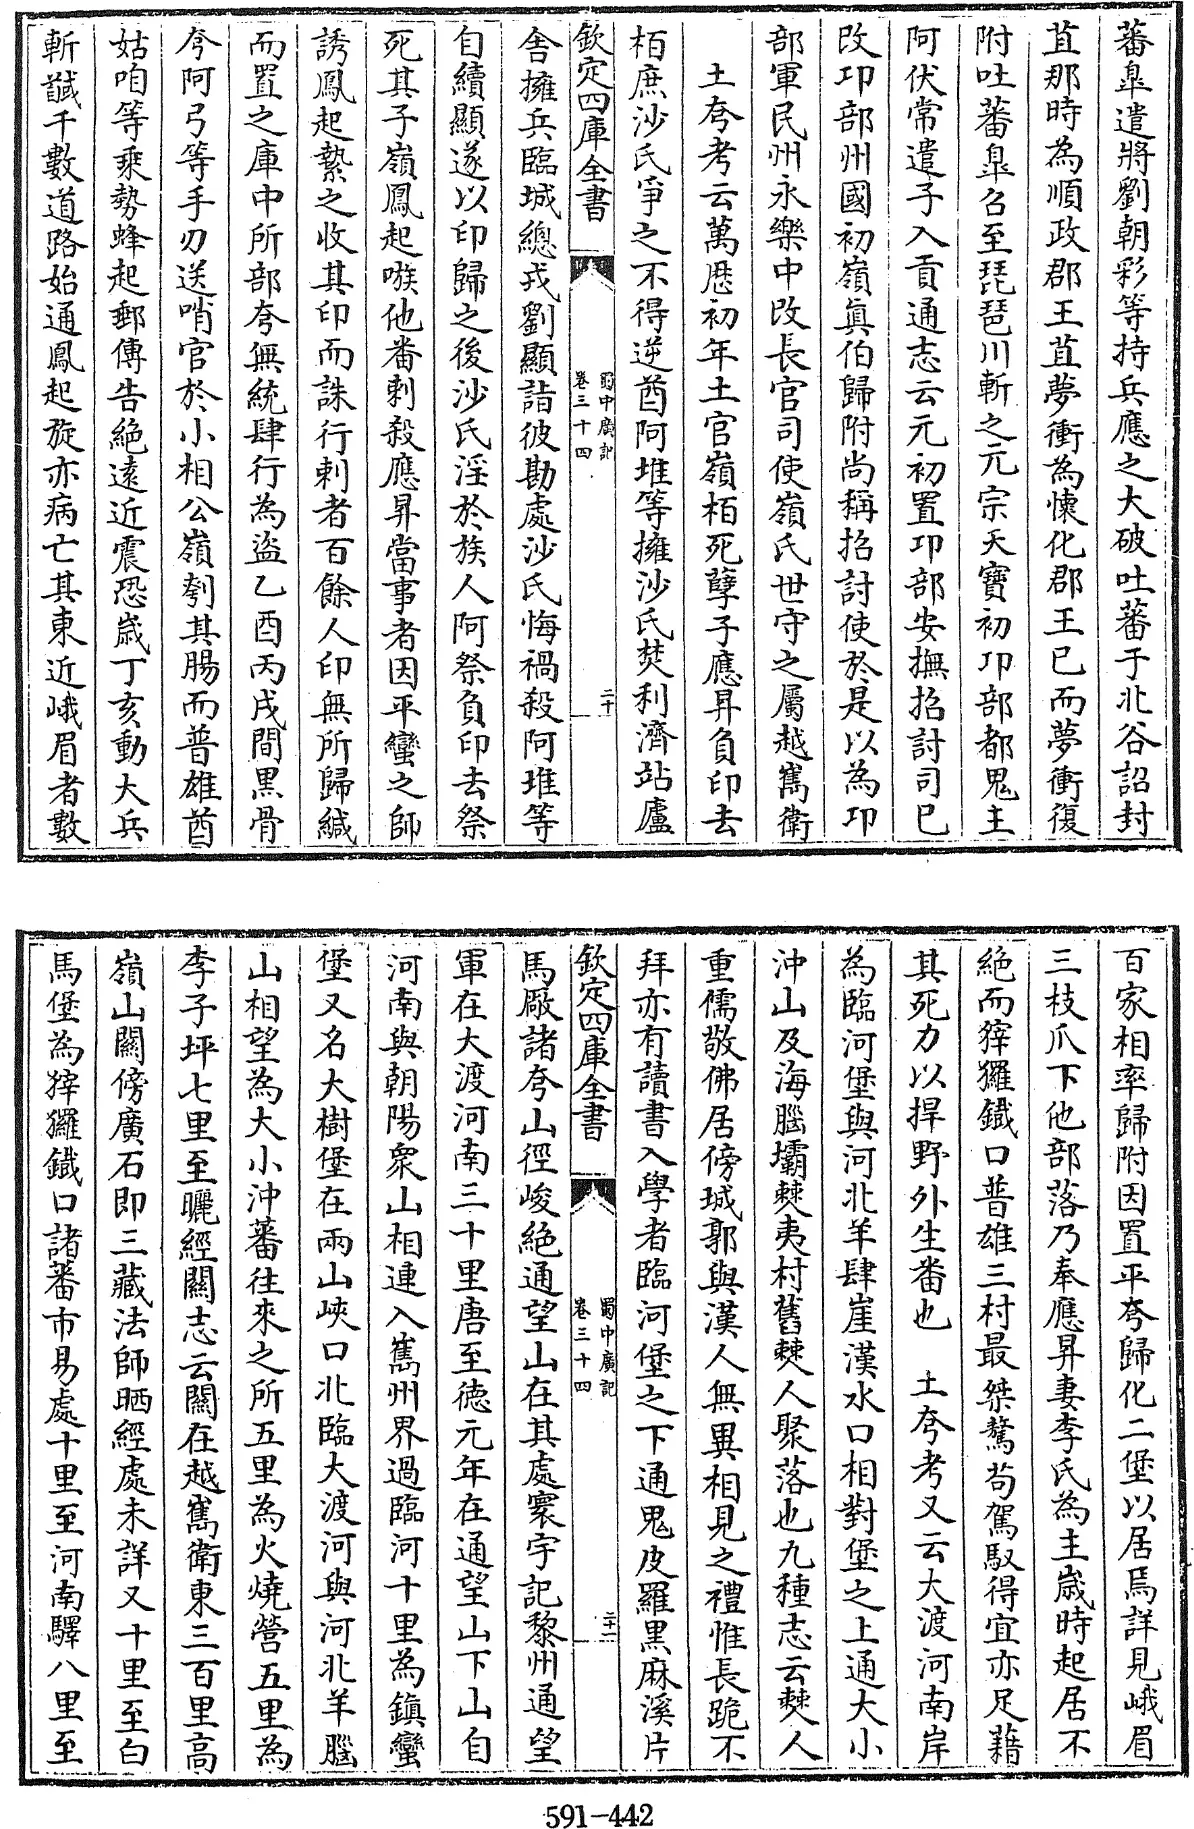 蕃臯遣將劉朝彩等持兵應之大破吐蕃于北谷詔封
苴那時為順政郡王苴夢衝為懷化郡王已而夢衝復
附吐蕃臯召至琵琶川斬之元宗天寶初卭部都鬼主
阿伏常遣子入貢通志云元初置卭部安撫招討司已
改卭部州國初嶺真伯歸附尚稱招討使於是以為卭
部軍民州永樂中改長官司使嶺氏世守之屬越嶲衛
土夸考云萬厯初年土官嶺栢死孽子應昇負印去
栢庶沙氏爭之不得逆酋阿堆等擁沙氏焚利濟站廬
欽定四庫全書
蜀中廣記
卷三十四
二十
舎擁兵臨城總戎劉顯詣彼勘處沙氏悔禍殺阿堆等
自續顯遂以印歸之後沙氏淫於族人阿祭負印去祭
死其子嶺鳳起嗾他畨刺殺應昇當事者因平蠻之師
誘鳳起縶之收其印而誅行刺者百餘人印無所歸緘
而置之庫中所部夸無統肆行為盜乙酉丙戌間黒骨
夸阿弓等手刃送哨官於小相公嶺刳其腸而普雄酋
姑咱等乘勢蜂起郵傳告絶遠近震恐歲丁亥動大兵
斬馘千數道路始通鳳起旋亦病亡其東近峨眉者數
百家相率歸附因置平夸歸化二堡以居焉詳見峨眉
三枝爪下他部落乃奉應昇妻李氏為主歲時起居不
絶而猓玀鐵口普雄三村最桀驁茍駕馭得宜亦足藉
其死力以捍野外生畨也　土夸考又云大渡河南岸
為臨河堡與河北羊肆崖漢水口相對堡之上通大小
沖山及海腦壩僰夷村舊僰人聚落也九種志云僰人
重儒敬佛居傍城郭與漢人無異相見之禮惟長跪不
拜亦有讀書入學者臨河堡之下通鬼皮羅黒麻溪片
欽定四庫全書
蜀中廣記
卷三十四
二十一
馬厰諸夸山徑峻絶通望山在其處寰宇記黎州通望
軍在大渡河南三十里唐至德元年在通望山下山自
河南與朝陽衆山相連入嶲州界過臨河十里為鎮蠻
堡又名大樹堡在兩山峽口北臨大渡河與河北羊腦
山相望為大小沖蕃往來之所五里為火燒營五里為
李子坪七里至曬經關志云關在越嶲衛東三百里高
嶺山關傍廣石即三藏法師晒經處未詳又十里至白
馬堡為猓玀鐵口諸蕃市易處十里至河南驛八里至
591-442